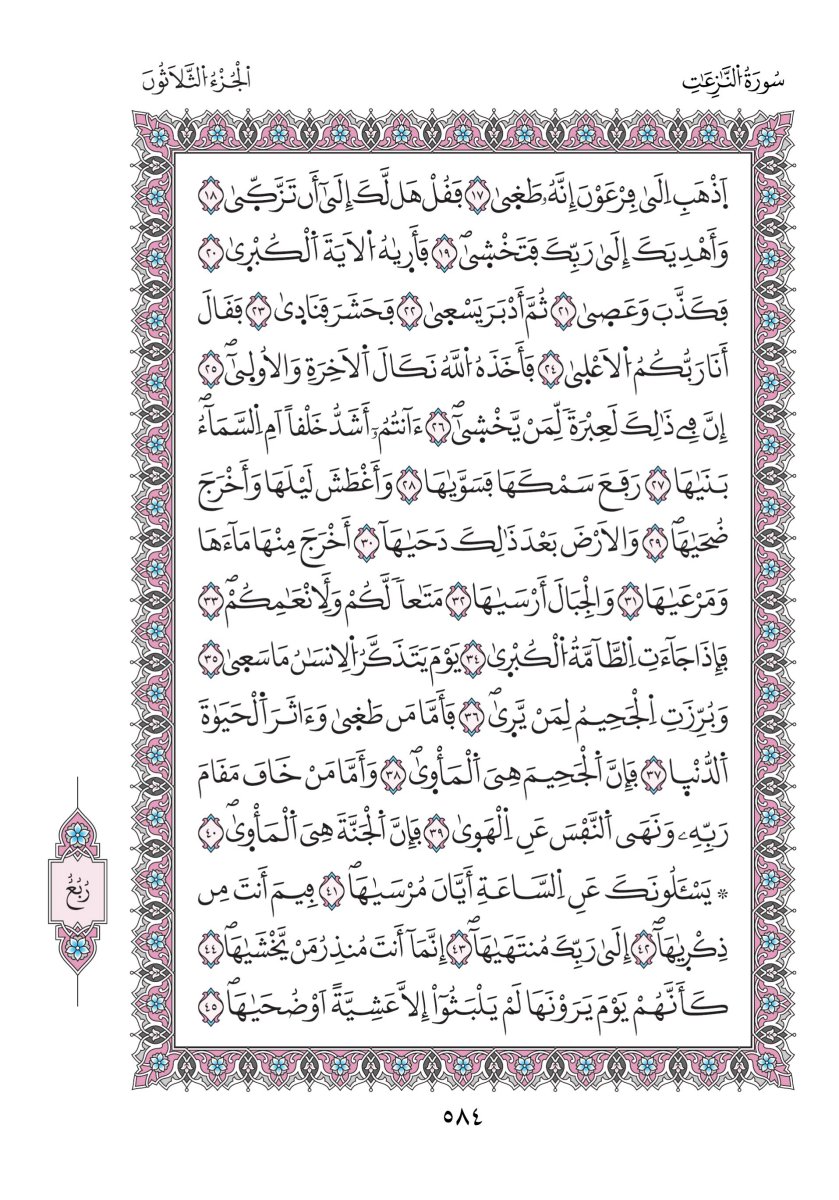 سُورَةُ اُلنَّٰزِعَٰتِ
اُلْجُزْءُ اُلثَّلَاثُونَ
اَذْهَبِ اِلَىٰ فِرْعَوْنَ إِنَّهُۥ طَغ۪يٰ ١٧ فَقُلْ هَل لَّكَ إِلَىٰٓ أَن تَزَّكّ۪يٰ ١٨
وَأَهْدِيَكَ إِلَىٰ رَبِّكَ فَتَخْش۪يٰۖ ١٩ فَأَر۪يٰهُ اُلَايَةَ اَلْكُبْر۪يٰ ٢٠
فَكَذَّبَ وَعَص۪يٰ ٢١ ثُمَّ أَدْبَرَ يَسْع۪يٰ ٢٢ فَحَشَرَ فَنَاد۪يٰ ٢٣ فَقَالَ
أَنَا رَبُّكُمُ اُلَاعْل۪يٰ ٢٤ فَأَخَذَهُ اُللَّهُ نَكَالَ اَلَاخِرَةِ وَالُاول۪يٰٓۖ ٢٥
إِنَّ فِے ذَٰلِكَ لَعِبْرَةٗ لِّمَنْ يَّخْش۪يٰٓۖ ٢٦ ءَآنتُمُۥٓ أَشَدُّ خَلْقاً اَمِ اِلسَّمَآءُۖ
بَن۪يٰهَا ٢٧ رَفَعَ سَمْكَهَا فَسَوّ۪يٰهَا ٢٨ وَأَغْطَشَ لَيْلَهَا وَأَخْرَجَ
ضُح۪يٰهَاۖ ٢٩ وَالَارْضَ بَعْدَ ذَٰلِكَ دَح۪يٰهَآ ٣٠ أَخْرَجَ مِنْهَا مَآءَهَا
وَمَرْع۪يٰهَا ٣١ وَالْجِبَالَ أَرْس۪يٰهَا ٣٢ مَتَٰعاٗ لَّكُمْ وَلِأَنْعَٰمِكُمْۖ ٣٣
فَإِذَا جَآءَتِ اِلطَّآمَّةُ اُلْكُبْر۪يٰ ٣٤ يَوْمَ يَتَذَكَّرُ اُلِانسَٰنُ مَا سَع۪يٰ ٣٥
وَبُرِّزَتِ اِلْجَحِيمُ لِمَنْ يَّر۪يٰۖ ٣٦ فَأَمَّا مَن طَغ۪يٰ وَءَاثَرَ اَلْحَيَوٰةَ
اَلدُّنْي۪ا ٣٧ فَإِنَّ اَلْجَحِيمَ هِيَ اَلْمَأْو۪يٰۖ ٣٨ وَأَمَّا مَنْ خَافَ مَقَامَ
رَبِّهِۦ وَنَهَى اَلنَّفْسَ عَنِ اِلْهَو۪يٰ ٣٩ فَإِنَّ اَلْجَنَّةَ هِيَ اَلْمَأْو۪يٰۖ ٤٠
* يَسْـَٔلُونَكَ عَنِ اِلسَّاعَةِ أَيَّانَ مُرْس۪يٰهَاۖ ٤١ فِيمَ أَنتَ مِن
ذِكْر۪يٰهَآۖ ٤٢ إِلَىٰ رَبِّكَ مُنتَه۪يٰهَآۖ ٤٣ إِنَّمَآ أَنتَ مُنذِرُ مَنْ يَّخْش۪يٰهَاۖ ٤٤
كَأَنَّهُمْ يَوْمَ يَرَوْنَهَا لَمْ يَلْبَثُوٓاْ إِلَّا عَشِيَّةً اَوْ ضُح۪يٰهَاۖ ٤٥
رُبُعُ
٥٨٤